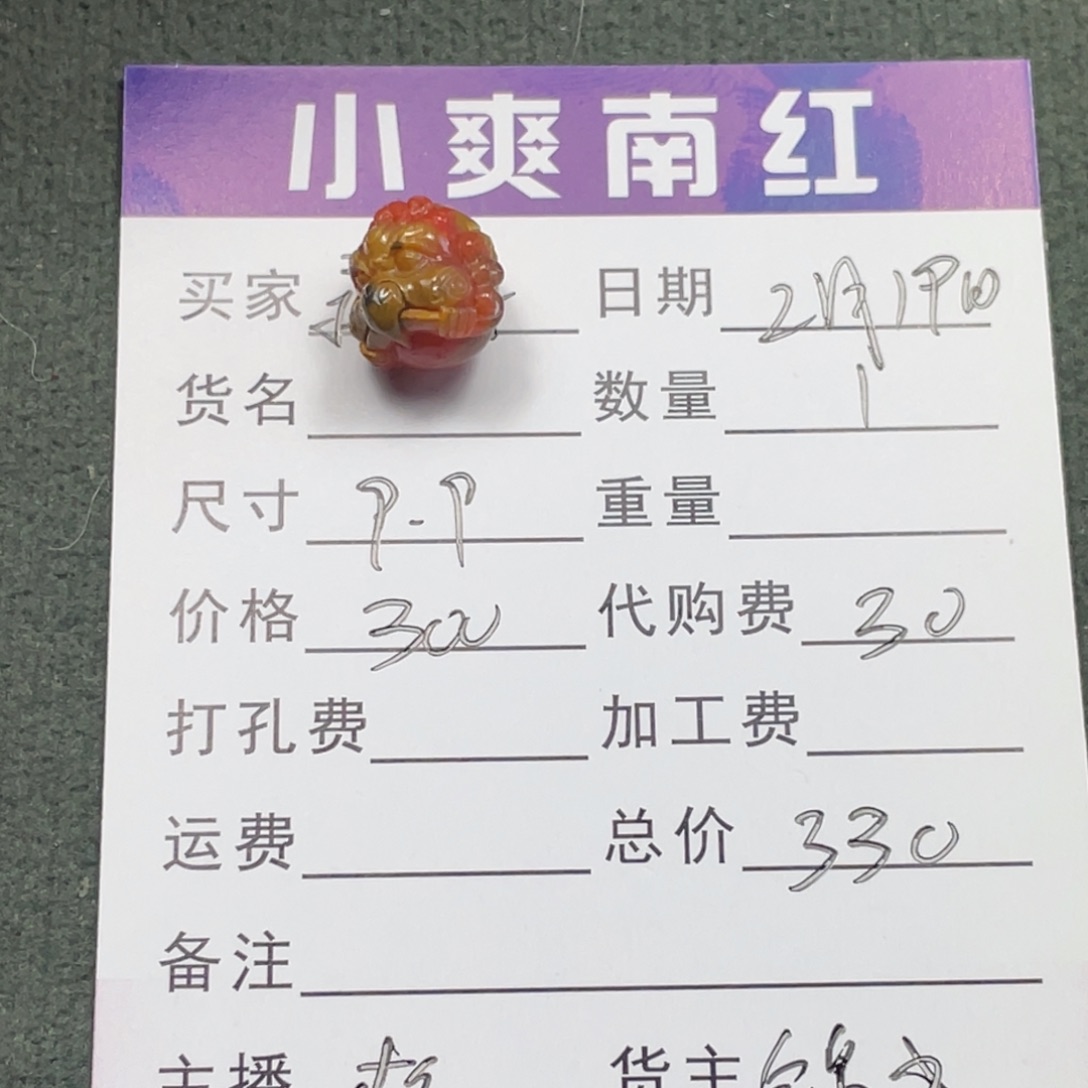 小爽南红
买家 日期 2月19日
货名 数量 1
尺寸 9.9 重量
价格 300 代购费 30
打孔费 加工费
运费 总价 330
备注
主播 货主